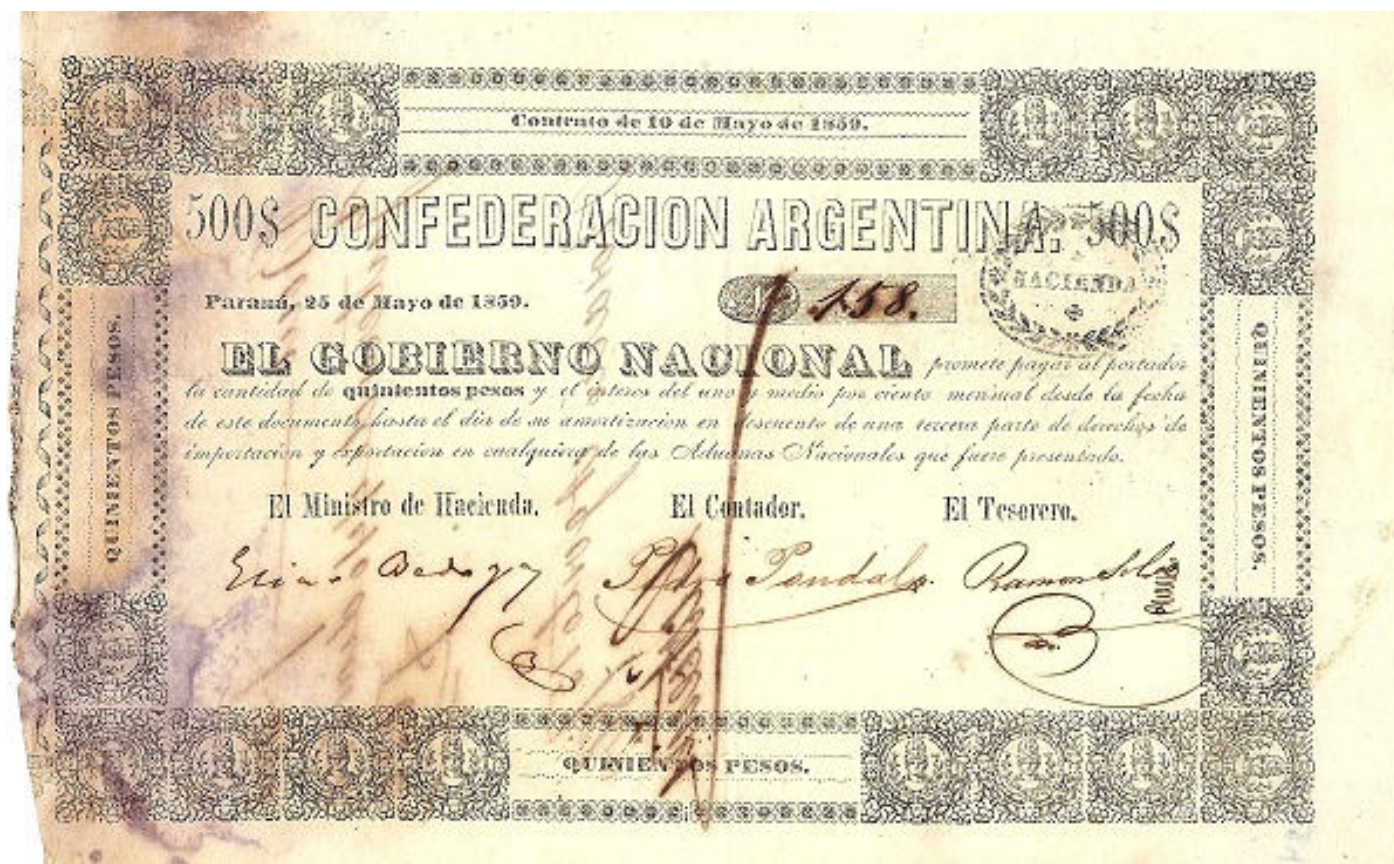 Contrato de 10 de Mayo de 1859.
500$ CONFEDERACION ARGENTINA. 500$
HACIENDA
Paraná, 25 de Mayo de 1859.
158.
EL GOBIERNO NACIONAL promete pagar al portador
la cantidad de quinientos pesos y el interes del uno y medio por ciento mensual desde la fecha
de este documento hasta el dia de su amortizacion en descuento de una tercera parte de derechos de
importacion y esportacion en cualquiera de las Aduanas Nacionales que fuere presentado.
El Ministro de Hacienda. El Contador. El Tesorero.
Elias Bedoya Pedro Pondal Ramon
QUINIENTOS PESOS.
QUINIENTOS PESOS.
QUINIENTOS PESOS.